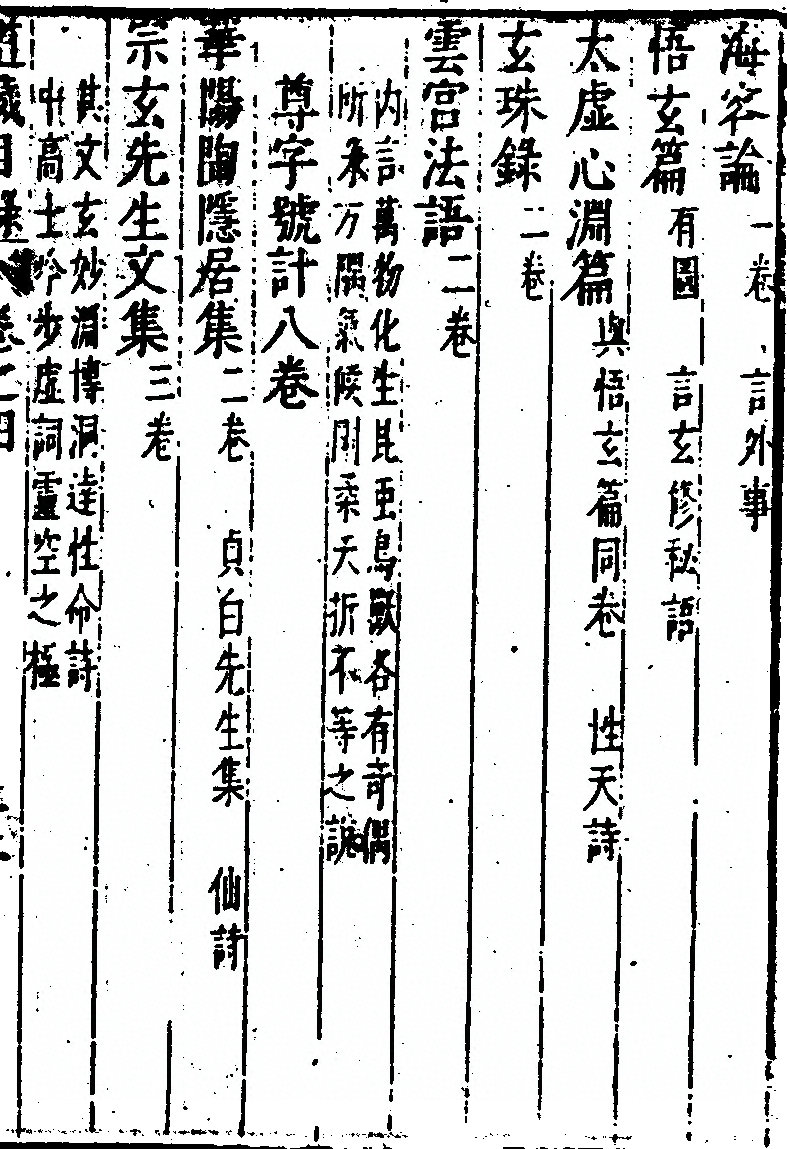 海客論一卷 言外事
悟玄篇有圖 言玄修秘語
太虛心淵篇與悟玄篇同卷 性天詩
玄珠錄二卷
雲宮法語二卷
內言萬物化生昆虫鳥獸各有奇偶
所稟万隅氣候剛柔夭折不等之說
尊字號計八卷
華陽陶隱居集二卷 貞白先生集 仙詩
宗玄先生文集三卷
其文玄妙淵博洞達性命詩
中高士吟步虛詞靈空之極
道藏目錄 卷之四